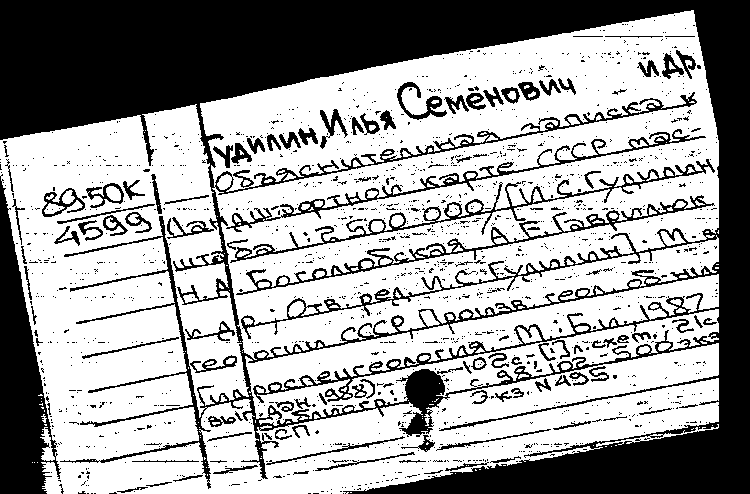 Гудилин, Илья Семёнович и др.
89-50К
4599
Объяснительная записка к
ландшафтной карте СССР мас-
штаба 1:2 500 000 / [И.С. Гудилин,
Н.А. Боголюбская, А.Е. Гаврилюк
и др.; Отв. ред. И.С. Гудилин]; М-во
геологии СССР, Произв. геол. об-ние
Гидроспецгеология. - М.: Б.и., 1987
(вып. дан. 1988). 102 с. [1] л. схем.; 21 с
Библиогр.: с. 98-102. - 500 экз
ДСП. Экз. N 495.